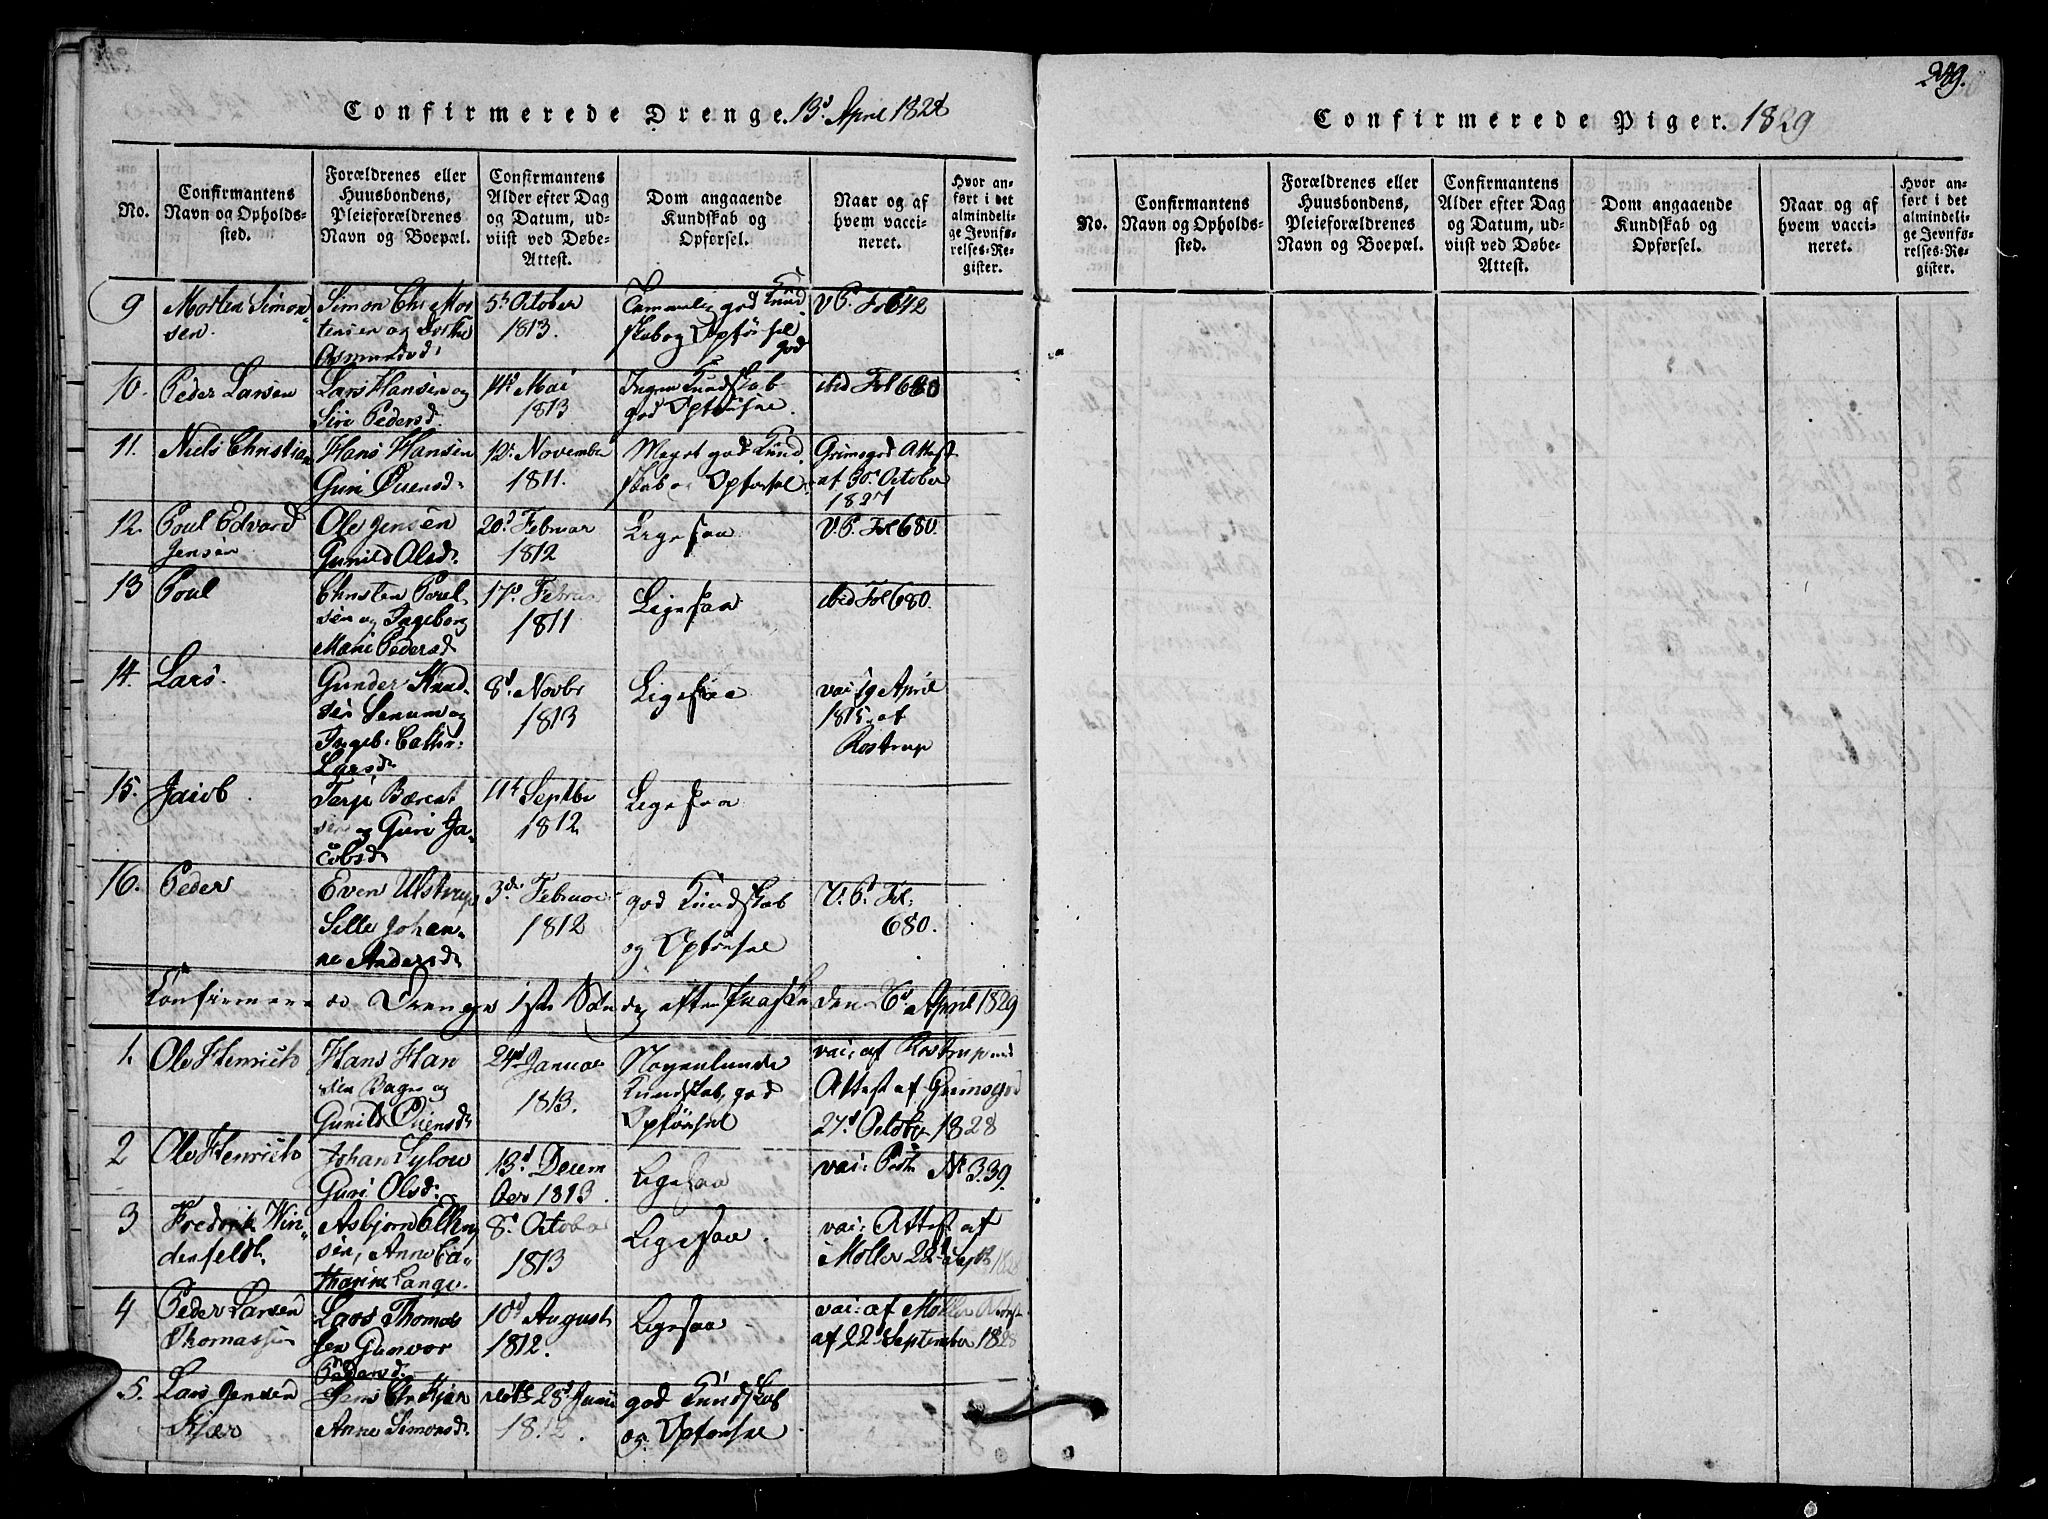 Confirmerede Drenge. 13d April 1828
No.
Confirmantens Navn og Opholds-sted.
Forældrenes eller Huusbondens, Pleieforældrenes Navn og Boepæl.
Confirmantens Alder efter Dag og Datum, ud-viist ved Døbe-Attest.
Dom angaaende Kundskab og Opførsel.
Naar og af hvem vacci-neret.
Hvor an-ført i det almindeli-ge Jevnfø-relses-Re-gister.
9 Morten Simon-
sen.
Simon Chr Mor-
tensen og Dorthe
Asmundsd:
5te October
1813.
Temmelig god Kund-
skab og Opførsel
god
V. P. Fol 642
10. Peder Larsen
Lars Hansen og
Siri Pedersd.
14d Mai
1813
Ingen Kundskab
god Opførsel.
ibid Fol 680
11. Niels Christian
Hans Hansen
Guri Ouensd:
12. November
1811.
Meget god Kund-
skab og Opførsel
Grimsgod Attest
af 30. October
1827
12. Poul Edvard
Jensen
Ole Jensen
Gunild Olsd:
20d Februar
1812
Ligesaa
V. P. Fol 680.
13 Poul
Christen Poul-
sen og Ingeborg
Marie Pedersd
17d Februar
1811
Ligesaa
ibid Fol 680.
14. Lars.
Gunder Knud-
sen Senum og
Ingeb: Cathr:
Larsd:
8d Novbr
1813
Ligesaa
vac: 19 April
1815 af
Rostrup
15. Jacob
Terje Bærent
sen og Guri Ja-
cobsd:
11te Septbr
1812
Ligesaa
16. Peder
Even Ulstrup
Sille Johan-
ne Andersd:
3de Februar
1812
god Kundskab
og Opførsel
V. P. Fol:
680.
Confirmerede Drenge 1ste Søndag efter Paaske den 26d April 1829
1. Ole Henrich
Hans Han
sen Bages og
Gunild Ouensd:
24d Januar
1813.
Nogenlunde
Kundskab, god
Opførsel
vac: af Rostrup med
Attest af Grimsgod
27d October 1828
2 Ole Henrich
Johan Sylow
Guri Olsd:
13d Decem
ber 1813.
Ligesaa
vac: Prot: No 339.
3 Fredrik Win-
denfeldt
Asbjørn Elling
sen, Anne Ca-
tharine Lange.
8d October
1813
Ligesaa
vac: Attest af
Møller 22d Sept 1828
4 Peder Larsen
Thomassen
Lars Thomas
sen Gunvor
Pedersd.
10d August
1812.
Ligesaa
vac: af Møller Attest
af 22d September 1828
5. Lars Jensen
Kjær
Jens Chr Kjær
Anne Simonsd:
28d Juni
1812.
god Kundskab
og Opførsel
249.
Confirmerede Piger. 1829
No.
Confirmantens Navn og Opholds-sted.
Forældrenes eller Huusbondens, Pleieforældrenes Navn og Boepæl.
Confirmantens Alder efter Dag og Datum, ud-viist ved Døbe-Attest.
Dom angaaende Kundskab og Opførsel.
Naar og af hvem vacci-neret.
Hvor an-ført i det almindeli-ge Jevnfø-relses-Re-gister.